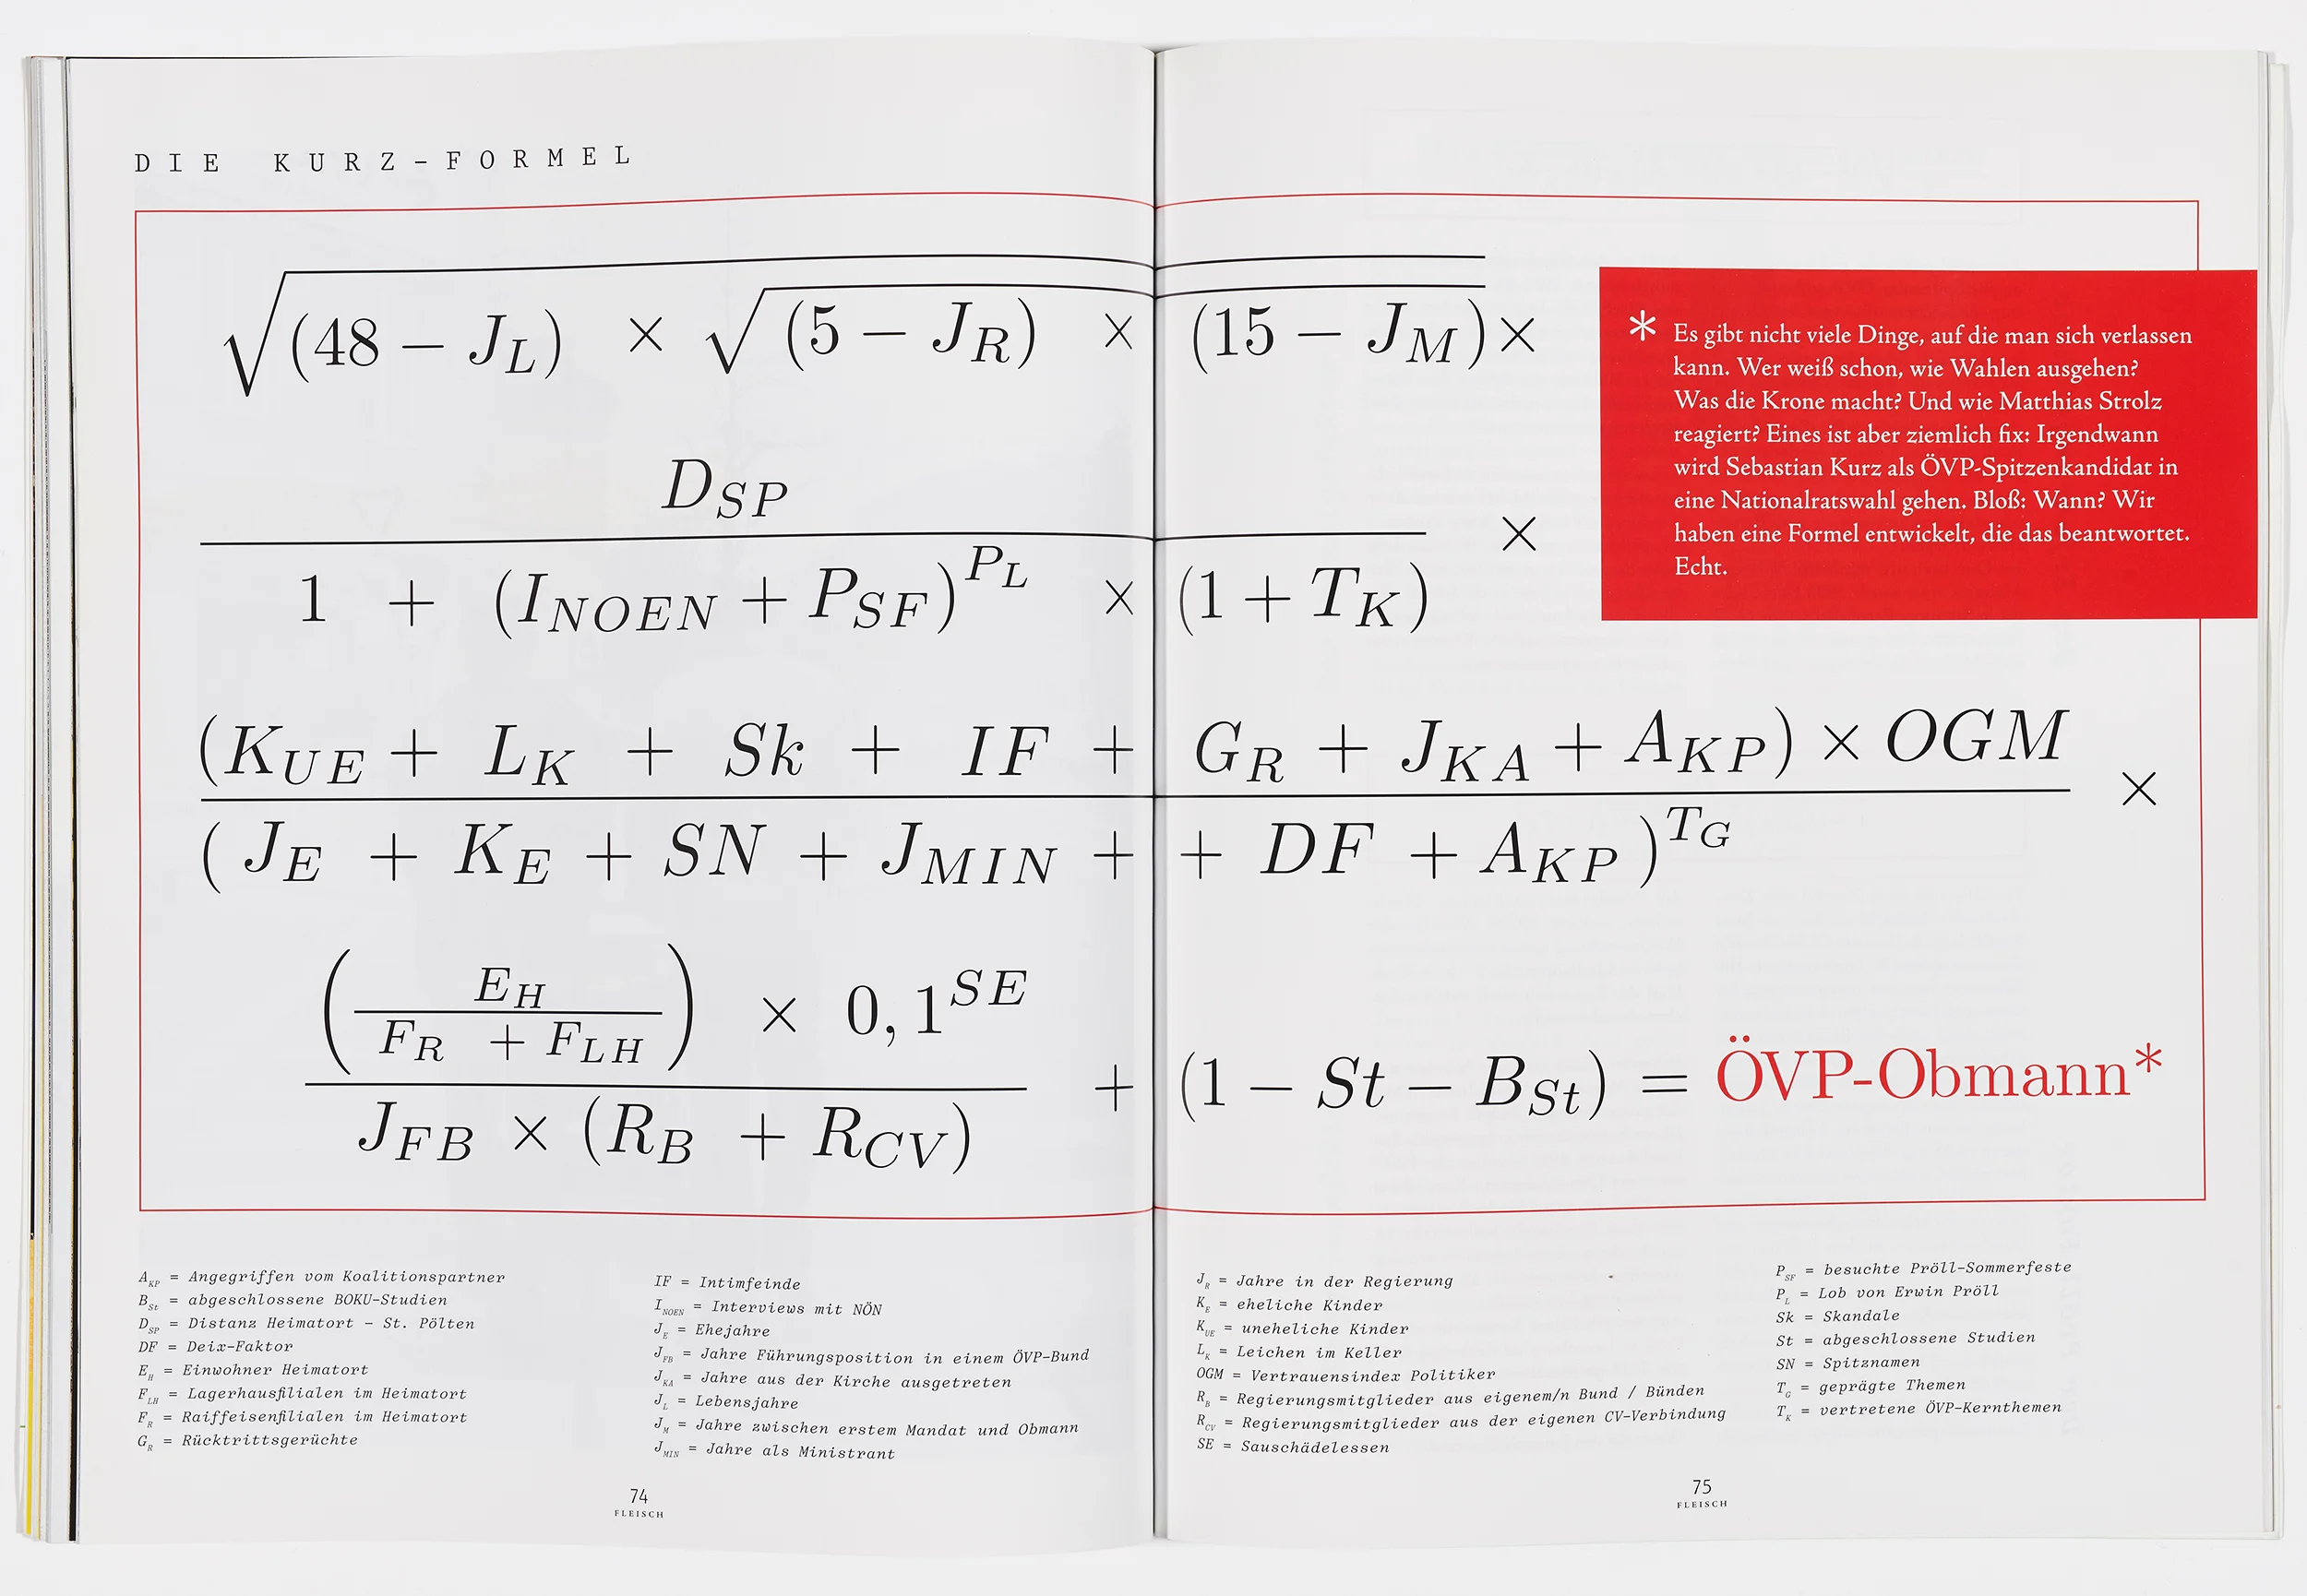 DIE KURZ-FORMEL
√(48 − J_L) × √(5 − J_R) × (15 − J_M) ×
D_SP
1 + (I_NOEN + P_SF)^P_L × (1 + T_K)
×
(K_UE + L_K + Sk + IF + G_R + J_KA + A_KP) × OGM
(J_E + K_E + SN + J_MIN + + DF + A_KP)^T_G
×
(E_H
F_R + F_LH) × 0,1^SE
J_FB × (R_B + R_CV)
+ (1 − St − B_St) = ÖVP-Obmann*
* Es gibt nicht viele Dinge, auf die man sich verlassen
kann. Wer weiß schon, wie Wahlen ausgehen?
Was die Krone macht? Und wie Matthias Strolz
reagiert? Eines ist aber ziemlich fix: Irgendwann
wird Sebastian Kurz als ÖVP-Spitzenkandidat in
eine Nationalratswahl gehen. Bloß: Wann? Wir
haben eine Formel entwickelt, die das beantwortet.
Echt.
A_KP = Angegriffen vom Koalitionspartner
B_St = abgeschlossene BOKU-Studien
D_SP = Distanz Heimatort – St. Pölten
DF = Deix-Faktor
E_H = Einwohner Heimatort
F_LH = Lagerhausfilialen im Heimatort
F_R = Raiffeisenfilialen im Heimatort
G_R = Rücktrittsgerüchte
IF = Intimfeinde
I_NOEN = Interviews mit NÖN
J_E = Ehejahre
J_FB = Jahre Führungsposition in einem ÖVP-Bund
J_KA = Jahre aus der Kirche ausgetreten
J_L = Lebensjahre
J_M = Jahre zwischen erstem Mandat und Obmann
J_MIN = Jahre als Ministrant
J_R = Jahre in der Regierung
K_E = eheliche Kinder
K_UE = uneheliche Kinder
L_K = Leichen im Keller
OGM = Vertrauensindex Politiker
R_B = Regierungsmitglieder aus eigenem/n Bund / Bünden
R_CV = Regierungsmitglieder aus der eigenen CV-Verbindung
SE = Sauschädelessen
P_SF = besuchte Pröll-Sommerfeste
P_L = Lob von Erwin Pröll
Sk = Skandale
St = abgeschlossene Studien
SN = Spitznamen
T_G = geprägte Themen
T_K = vertretene ÖVP-Kernthemen
74
FLEISCH
75
FLEISCH